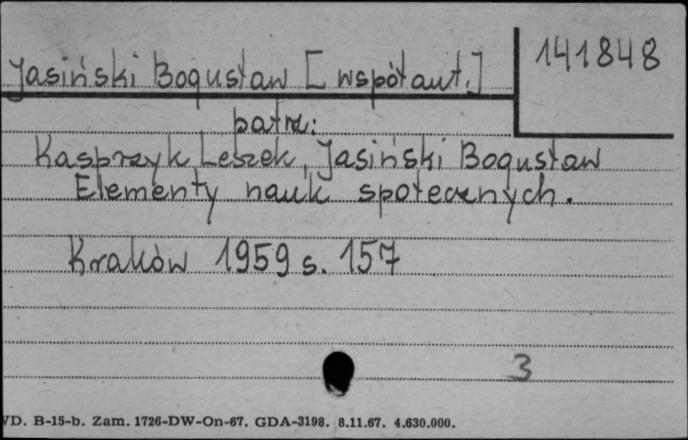 141848
Jasiński Bogusław [współaut.]
patrz:
Kasprzyk Leszek, Jasiński Bogusław
Elementy nauk społecznych.
Kraków 1959 s. 157
3
VD. B-15-b. Zam. 1726-DW-On-67. GDA-3198. 8.11.67. 4.630.000.